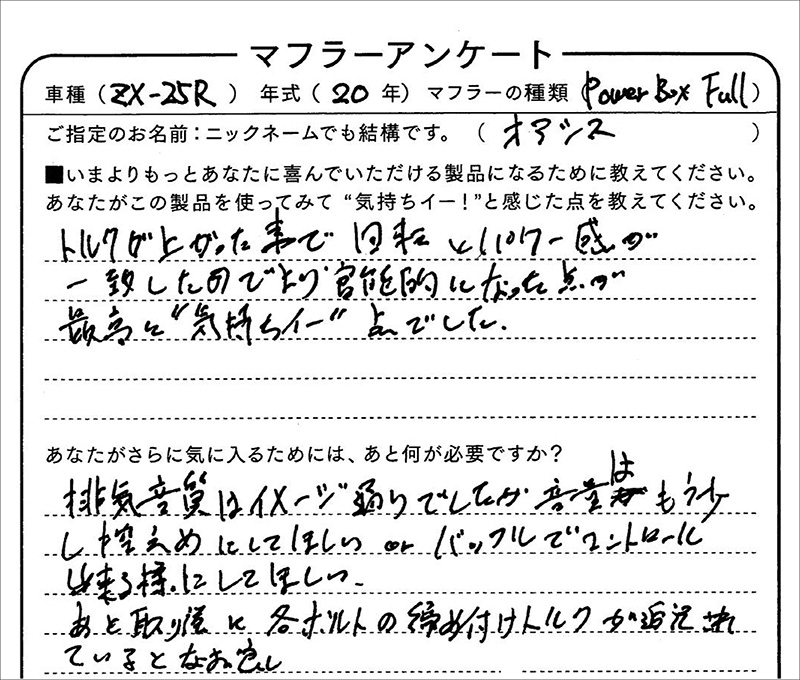 マフラーアンケート
車種（ZX-25R）　年式（20年）マフラーの種類（Power Box Full）
ご指定のお名前：ニックネームでも結構です。（オアシス）
■いまよりもっとあなたに喜んでいただける製品になるために教えてください。
あなたがこの製品を使ってみて“気持ちイー！”と感じた点を教えてください。
トルクが上がった事で回転とパワー感が
一致したのでより官能的になった点が
最高に“気持ちイー”点でした.
あなたがさらに気に入るためには、あと何が必要ですか？
排気音質はイメージ通りでしたが音量はもう少
し控えめにしてほしい or バッフルでコントロール
出来る様にしてほしい.
あと取り説に各ボルトの締め付けトルクが され
ているとなお良し